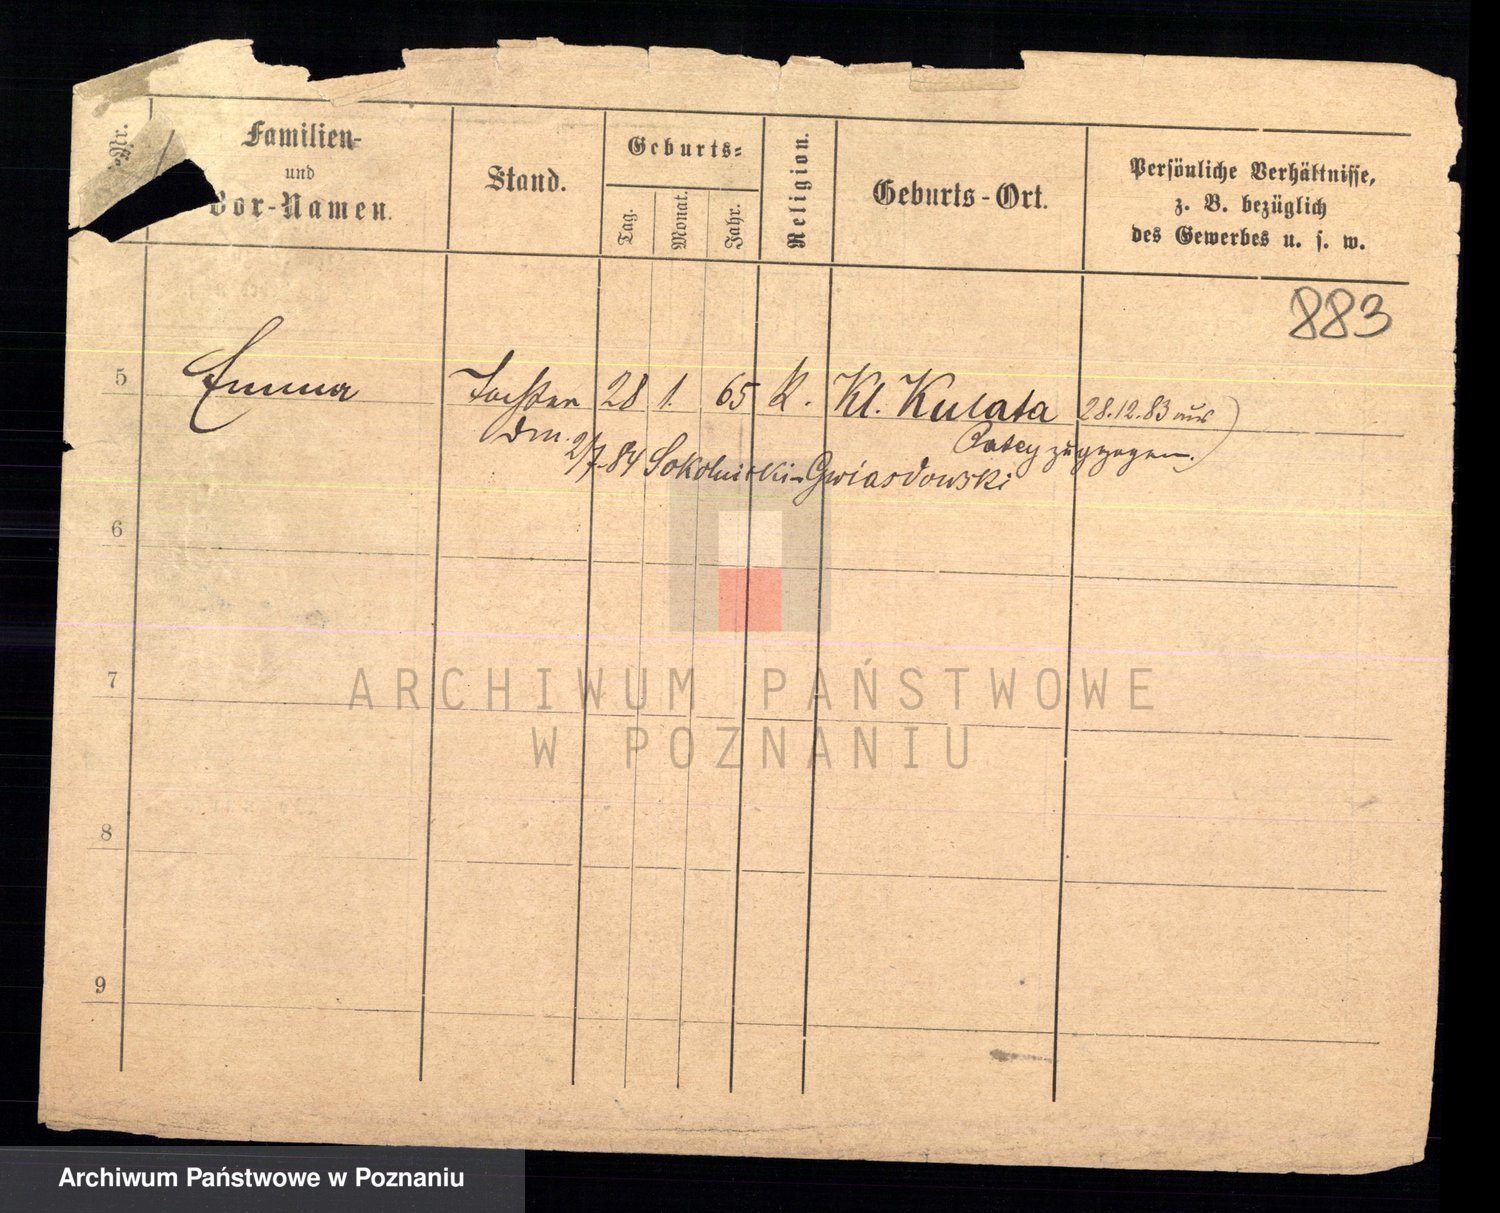 Nr.
Familien-
und
Vor-Namen.
Stand.
Geburts=
Tag.
Monat.
Jahr.
Religion.
Geburts-Ort.
Persönliche Verhältnisse,
z. B. bezüglich
des Gewerbes u. s. w.
883
5 Emma Tochter 28 1. 65 K. Kl. Kulata 28.12.83 aus
zugezogen.
2/7. 84 Sokolnicki-Gwiasdowski
6
7
8
9
ARCHIWUM PAŃSTWOWE
W POZNANIU
Archiwum Państwowe w Poznaniu